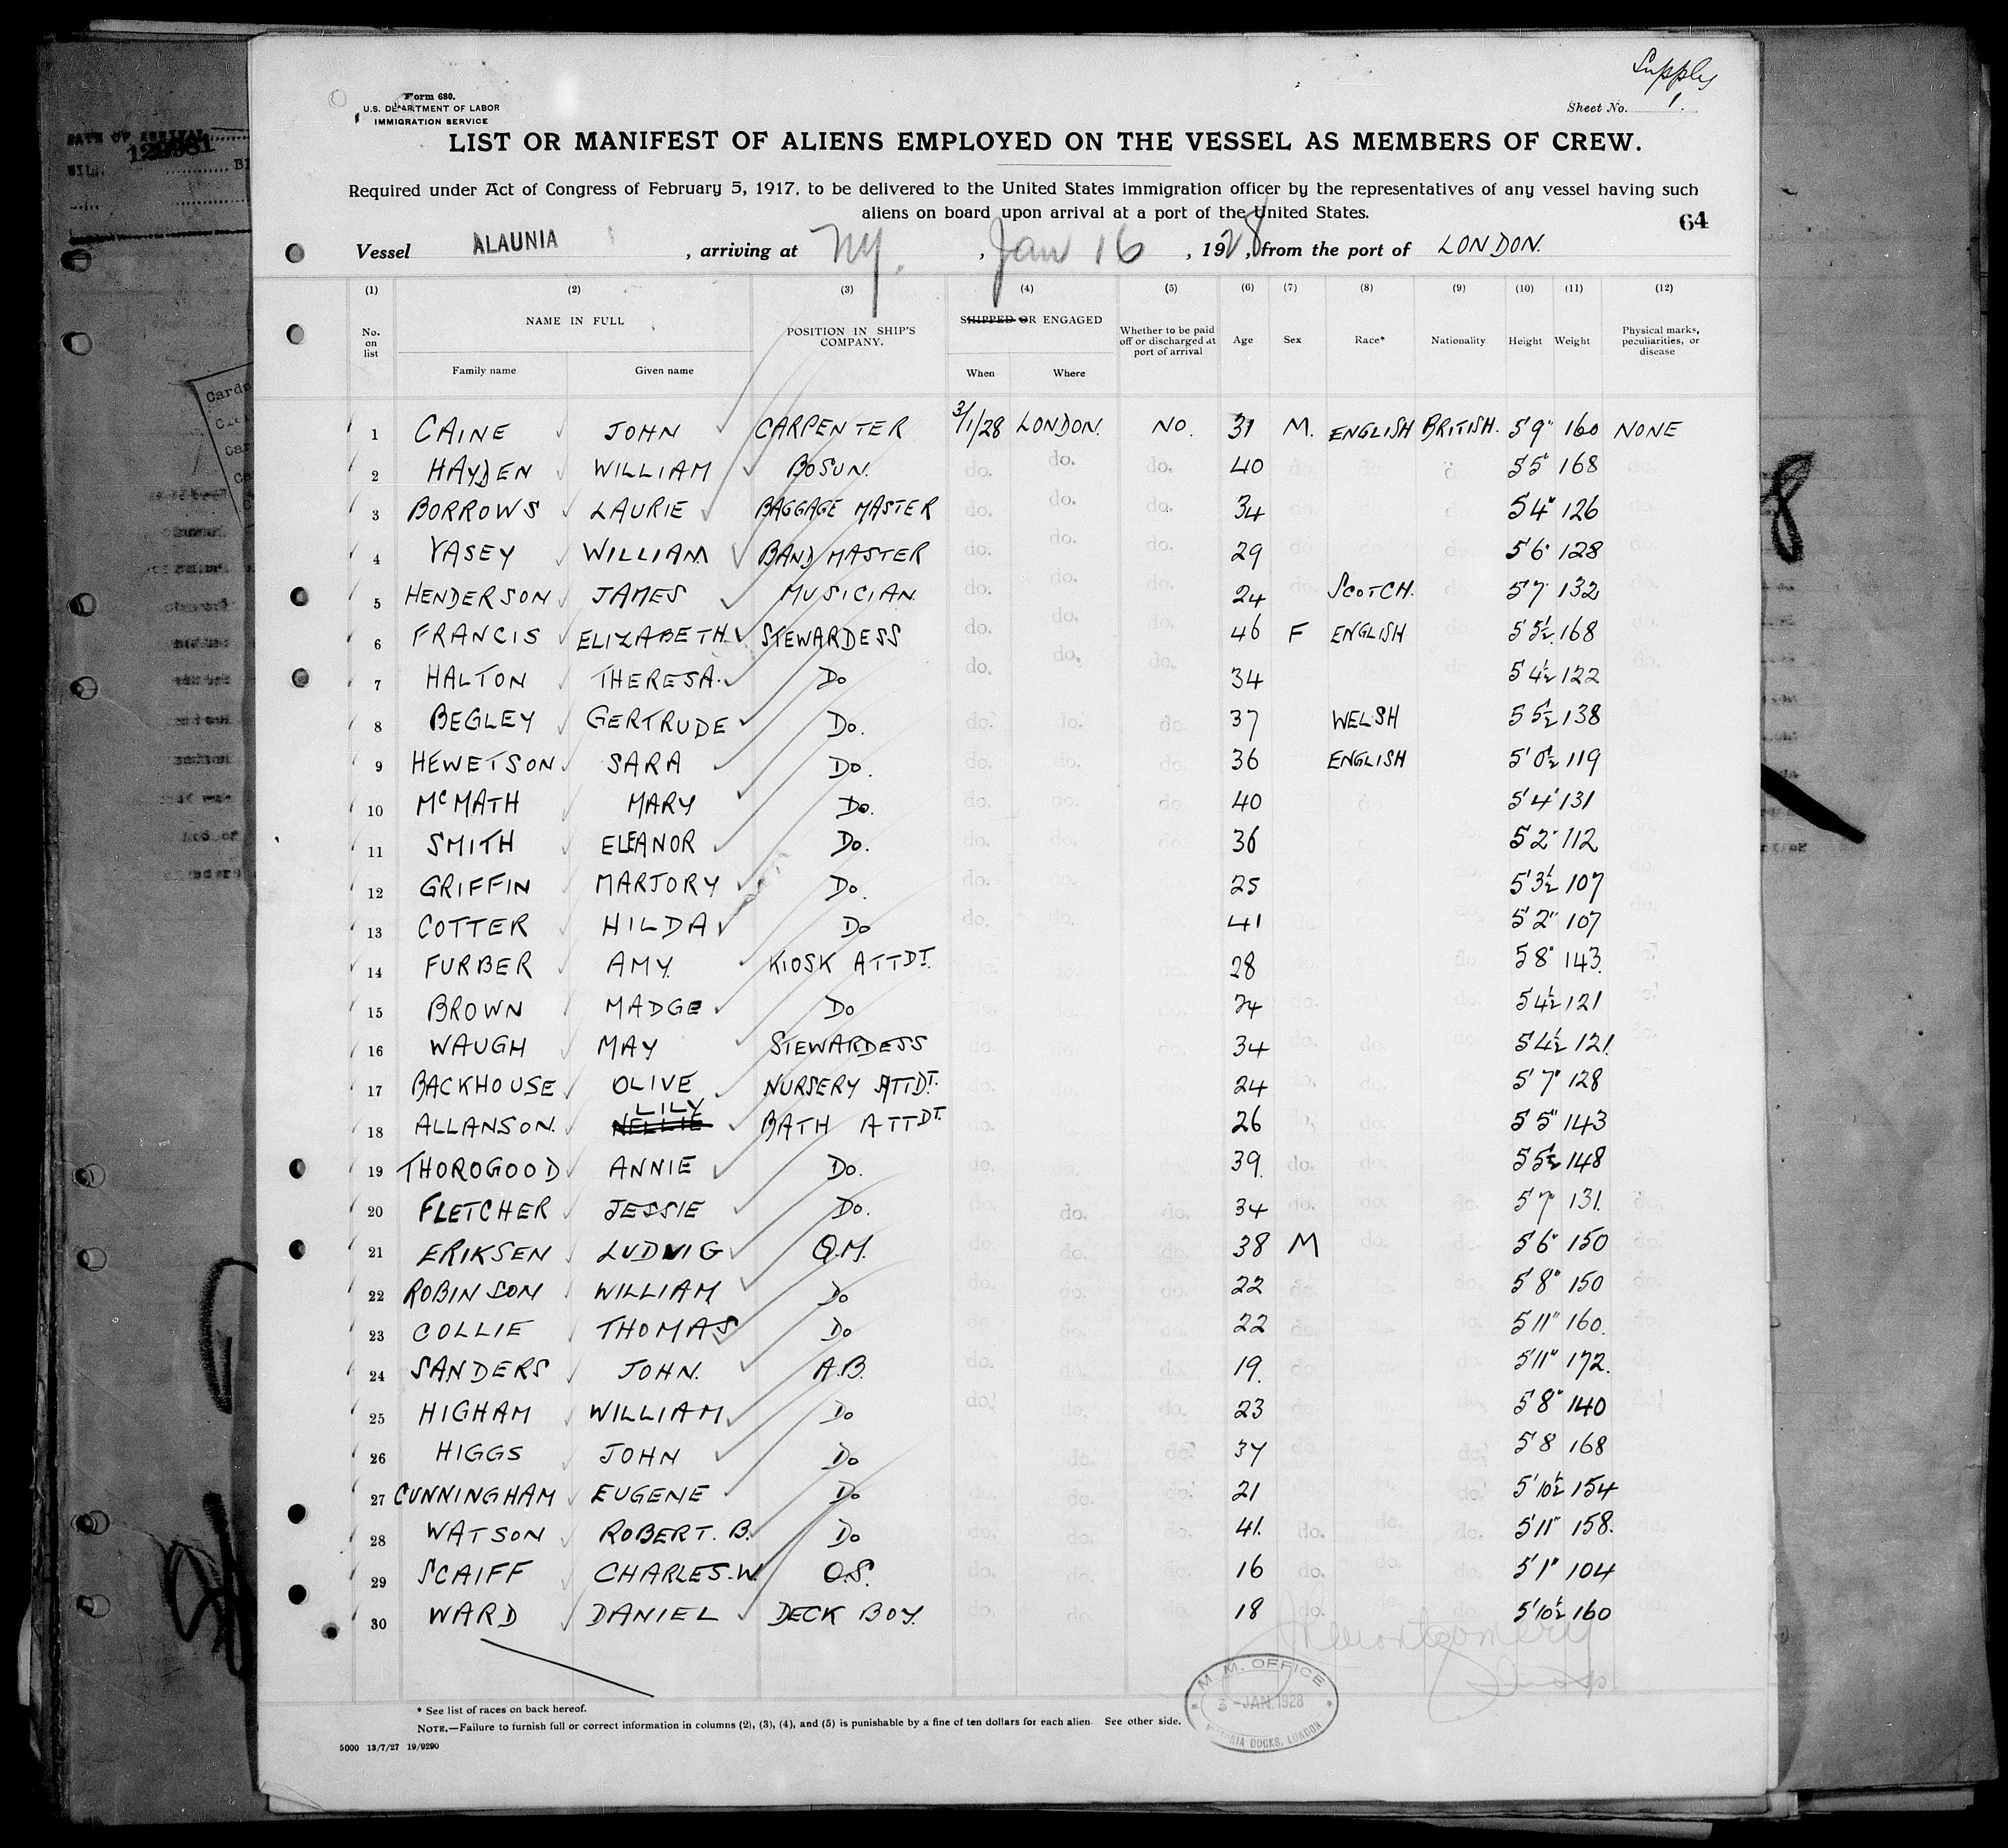 Supply
Sheet No. 1.
Form 680.
U.S. DEPARTMENT OF LABOR
IMMIGRATION SERVICE
LIST OR MANIFEST OF ALIENS EMPLOYED ON THE VESSEL AS MEMBERS OF CREW.
Required under Act of Congress of February 5, 1917, to be delivered to the United States immigration officer by the representatives of any vessel having such
aliens on board upon arrival at a port of the United States.
64
Vessel ALAUNIA, arriving at NY., Jan 16, 1928, from the port of LONDON.
(1) (2) (3) (4) (5) (6) (7) (8) (9) (10) (11) (12)
No. on list NAME IN FULL POSITION IN SHIP'S COMPANY. SHIPPED OR ENGAGED Whether to be paid off or discharged at port of arrival Age Sex Race* Nationality Height Weight Physical marks, peculiarities, or disease
Family name Given name When Where
1 CAINE JOHN CARPENTER 3/1/28 LONDON. NO. 31 M. ENGLISH BRITISH. 5'9" 160 NONE
2 HAYDEN WILLIAM BOSUN. do. do. do. 40 5'5" 168
3 BORROWS LAURIE BAGGAGE MASTER do. do. do. 34 5'4" 126
4 VASEY WILLIAM BAND MASTER do. do. do. 29 5'6" 128
5 HENDERSON JAMES MUSICIAN do. do. do. 24 SCOTCH. 5'7" 132
6 FRANCIS ELIZABETH. STEWARDESS do. do. do. 46 F ENGLISH 5'5½ 168
7 HALTON THERESA. DO do. do. do. 34 5'4½ 122
8 BEGLEY GERTRUDE DO. do. do. do. 37 WELSH 5'5½ 138
9 HEWETSON SARA DO. do. do. do. 36 ENGLISH 5'0½ 119
10 McMATH MARY DO. do. do. do. 40 5'4" 131
11 SMITH ELEANOR DO. do. do. do. 36 5'2" 112
12 GRIFFIN MARJORY DO. do. do. 25 5'3½ 107
13 COTTER HILDA DO do. do. 41 5'2" 107
14 FURBER AMY. KIOSK ATTDT. 28 5'8" 143.
15 BROWN MADGE DO 24 5'4½ 121
16 WAUGH MAY STEWARDESS 34 5'4½ 121.
17 BACKHOUSE OLIVE NURSERY ATTDT. 24 5'7" 128
18 ALLANSON. LILY NELLIE BATH ATTDT. 26 5'5" 143
19 THOROGOOD ANNIE DO. 39. do. 5'5½ 148
20 FLETCHER JESSIE DO. do. do. 34 5'7" 131.
21 ERIKSEN LUDWIG Q.M. do. do. do. 38 M 5'6" 150
22 ROBINSON WILLIAM DO do. do. 22 5'8" 150
23 COLLIE THOMAS DO do. do. 22 5'11" 160.
24 SANDERS JOHN. A.B. do. do. do. 19. 5'11" 172.
25 HIGHAM WILLIAM. DO do. do. do. 23 5'8" 140
26 HIGGS JOHN DO do. do. 37 5'8 168
27 CUNNINGHAM EUGENE DO do. do. 21 5'10½ 154
28 WATSON ROBERT. B. DO do. do. do. 41. do. do. do. 5'11" 158.
29 SCAIFF CHARLES.W. O.S. do. do. do. 16 do. do. do. 5'1" 104
30 WARD DANIEL DECK BOY. do. do. do. 18 do. do. do. 5'10½ 160
M. M. OFFICE
3 - JAN. 1928
VICTORIA DOCKS, LONDON
* See list of races on back hereof.
NOTE.—Failure to furnish full or correct information in columns (2), (3), (4), and (5) is punishable by a fine of ten dollars for each alien. See other side.
5000 13/7/27 19/9290